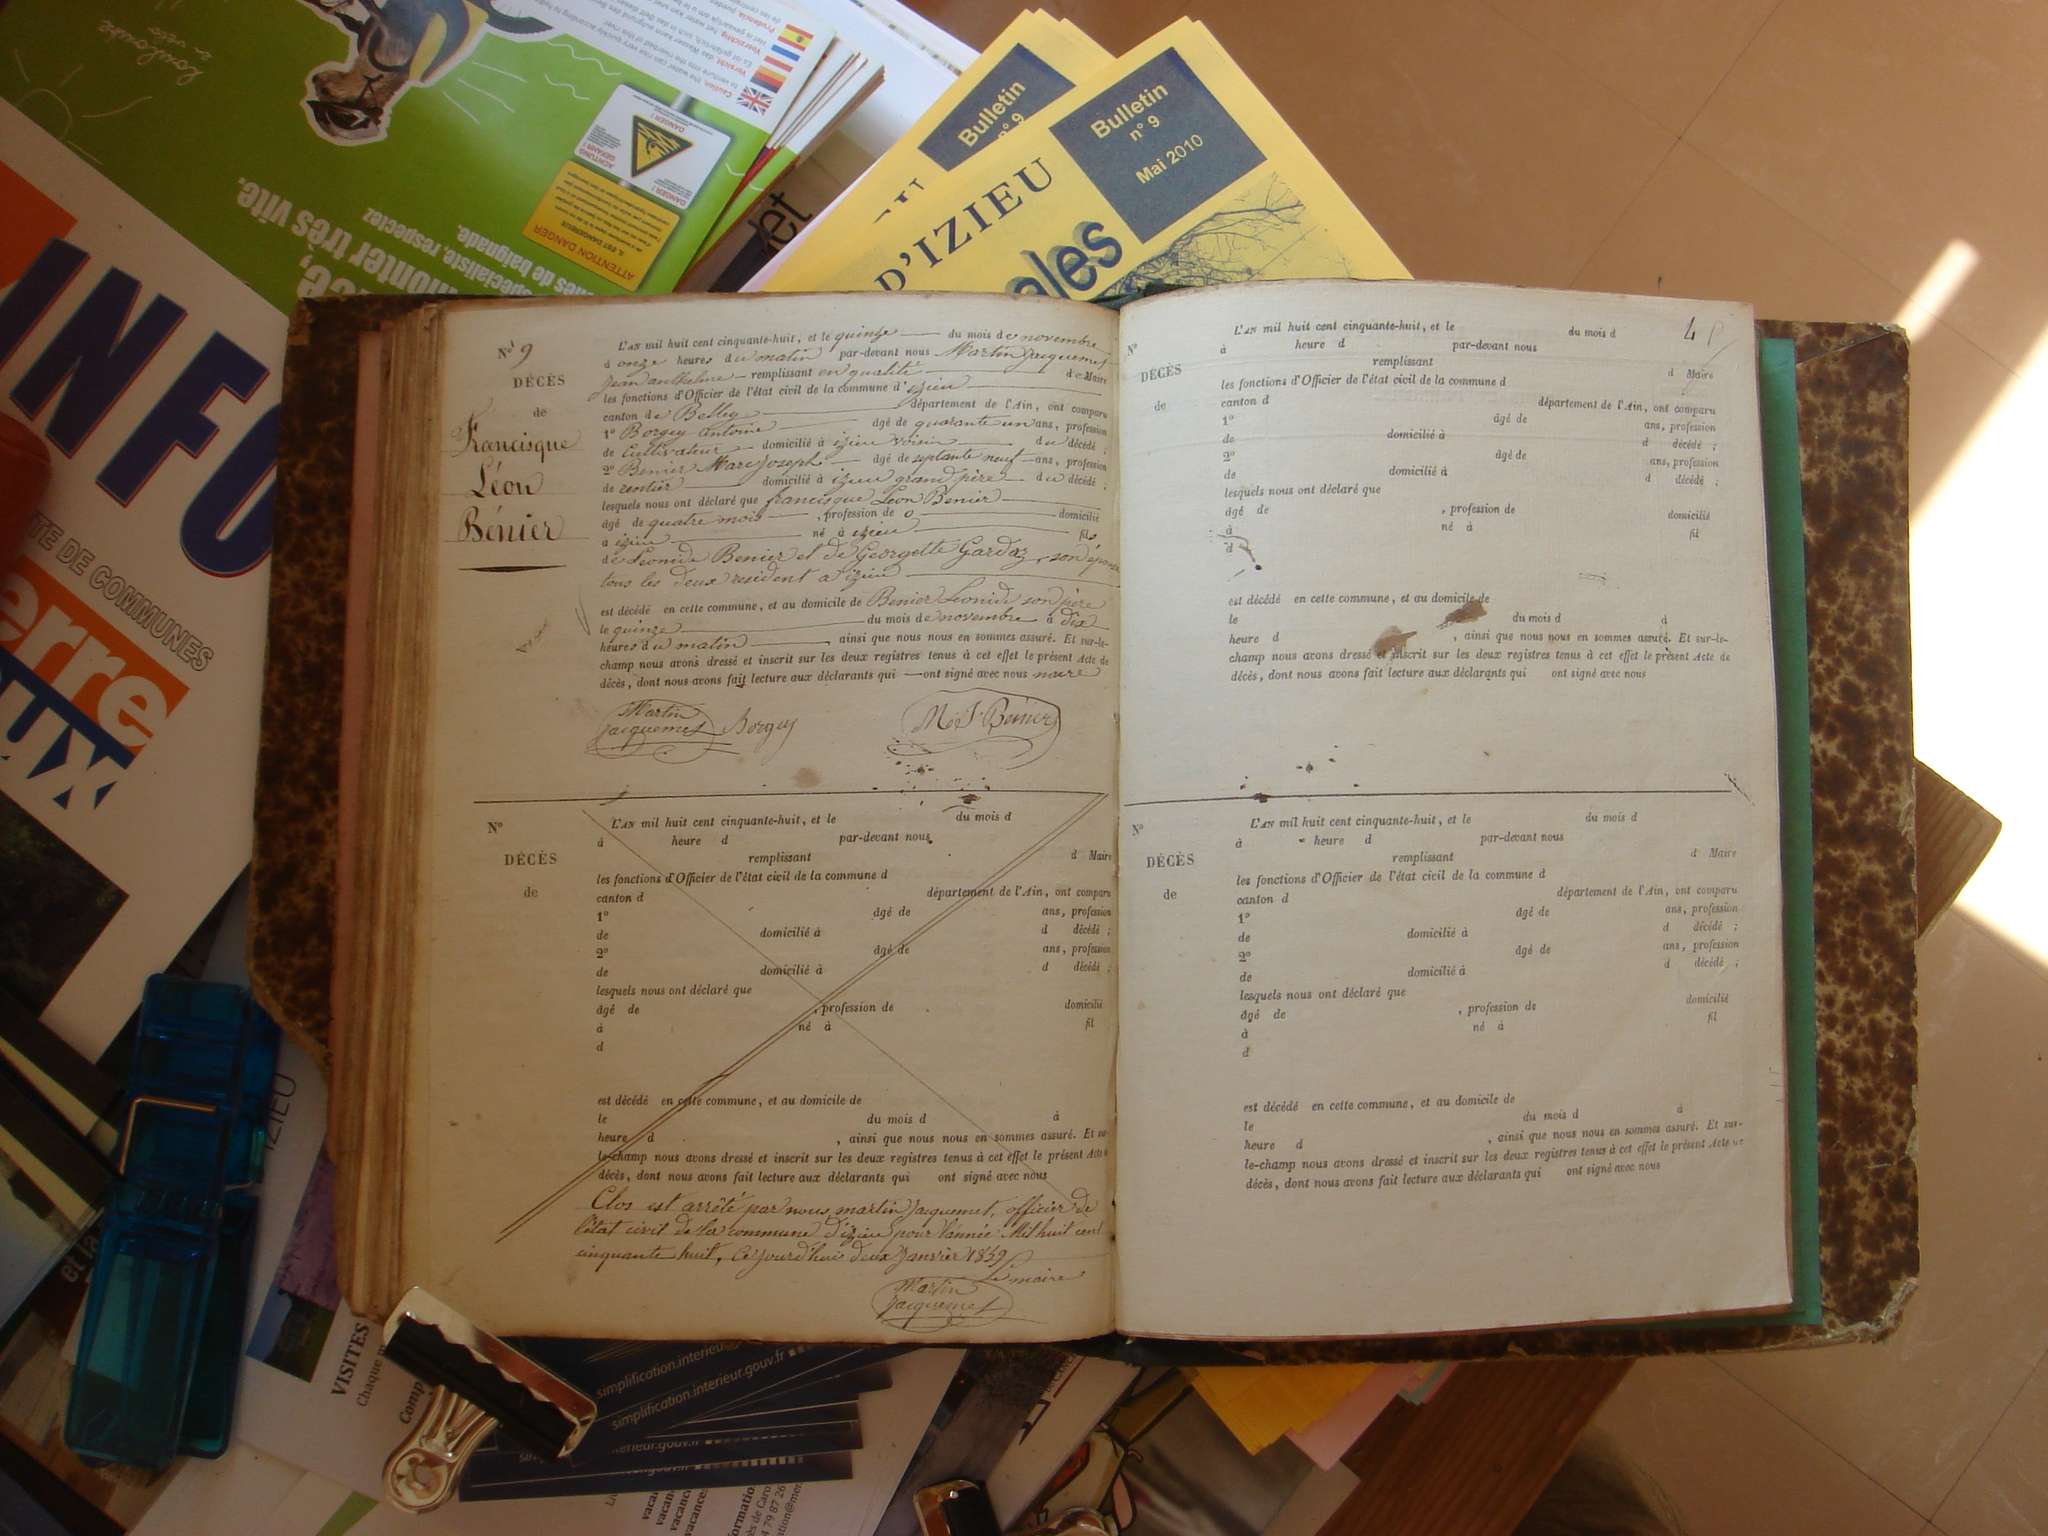 Nº 9
DÉCÈS
de
Francisque
Léon
Bénier
L'AN mil huit cent cinquante-huit, et le quinze du mois de novembre
à onze heures du matin par-devant nous Martin Jacquemet
Jean anthelme remplissant en qualité de Maire
les fonctions d'Officier de l'état civil de la commune d'izieu
canton de Belley département de l'Ain, ont comparu
1º Borgey antoine âgé de quarante un ans, profession
de Cultivateur domicilié à izieu voisin du décédé ;
2º Benier Marc joseph âgé de septante neuf ans, profession
de rentier domicilié à izieu grand père du décédé ;
lesquels nous ont déclaré que francisque Léon Benier
âgé de quatre mois , profession de o domicilié
à izieu né à izieu fils
de Leonide Benier et de Georgette Gardaz, son épouse
tous les deux resident a izieu
est décédé en cette commune, et au domicile de Benier Leonide son père
le quinze du mois de novembre à dix
heures du matin , ainsi que nous nous en sommes assuré. Et sur-le-
champ nous avons dressé et inscrit sur les deux registres tenus à cet effet le présent Acte de
décès, dont nous avons fait lecture aux déclarants qui ont signé avec nous maire
Martin
Jacquemet Borgey M. J. Benier
Nº
DÉCÈS
de
L'AN mil huit cent cinquante-huit, et le du mois d
à heure d par-devant nous
remplissant d Maire
les fonctions d'Officier de l'état civil de la commune d
canton d département de l'Ain, ont comparu
1º âgé de ans, profession
de domicilié à d décédé ;
2º âgé de ans, profession
de domicilié à d décédé ;
lesquels nous ont déclaré que
âgé de , profession de domicilié
à né à fil
d
est décédé en cette commune, et au domicile de
le du mois d à
heure d , ainsi que nous nous en sommes assuré. Et sur-
le-champ nous avons dressé et inscrit sur les deux registres tenus à cet effet le présent Acte de
décès, dont nous avons fait lecture aux déclarants qui ont signé avec nous
Clos est arrêté par nous, martin Jacquemet, officier de
l'état civil de la commune d'izieu pour l'année Mil huit cent
cinquante huit, Ce jourd'hui deux Janvier 1859
Le maire
Martin
Jacquemet
4
Nº
DÉCÈS
de
L'AN mil huit cent cinquante-huit, et le du mois d
à heure d par-devant nous
remplissant d Maire
les fonctions d'Officier de l'état civil de la commune d
canton d département de l'Ain, ont comparu
1º âgé de ans, profession
de domicilié à d décédé ;
2º âgé de ans, profession
de domicilié à d décédé ;
lesquels nous ont déclaré que
âgé de , profession de domicilié
à né à fil
d
est décédé en cette commune, et au domicile de
le du mois d à
heure d , ainsi que nous nous en sommes assuré. Et sur-le-
champ nous avons dressé et inscrit sur les deux registres tenus à cet effet le présent Acte de
décès, dont nous avons fait lecture aux déclarants qui ont signé avec nous
Nº
DÉCÈS
de
L'AN mil huit cent cinquante-huit, et le du mois d
à heure d par-devant nous
remplissant d Maire
les fonctions d'Officier de l'état civil de la commune d
canton d département de l'Ain, ont comparu
1º âgé de ans, profession
de domicilié à d décédé ;
2º âgé de ans, profession
de domicilié à d décédé ;
lesquels nous ont déclaré que
âgé de , profession de domicilié
à né à fil
d
est décédé en cette commune, et au domicile de
le du mois d à
heure d , ainsi que nous nous en sommes assuré. Et sur-
le-champ nous avons dressé et inscrit sur les deux registres tenus à cet effet le présent Acte de
décès, dont nous avons fait lecture aux déclarants qui ont signé avec nous
Bulletin
n° 9
Bulletin
n° 9
Mai 2010
D'IZIEU
ales
INFO
TE DE COMMUNES
erre
ux
monter très vite.
spécialiste, respectez
nes de baignade.
ATTENTION DANGER
DANGER !
Prudencia
Voorzichtig
Vorsicht
Caution
IZIEU
VISITES
Chaque
simplification.interieur
simplification.interieur.gouv.fr
terieur.gouv.fr